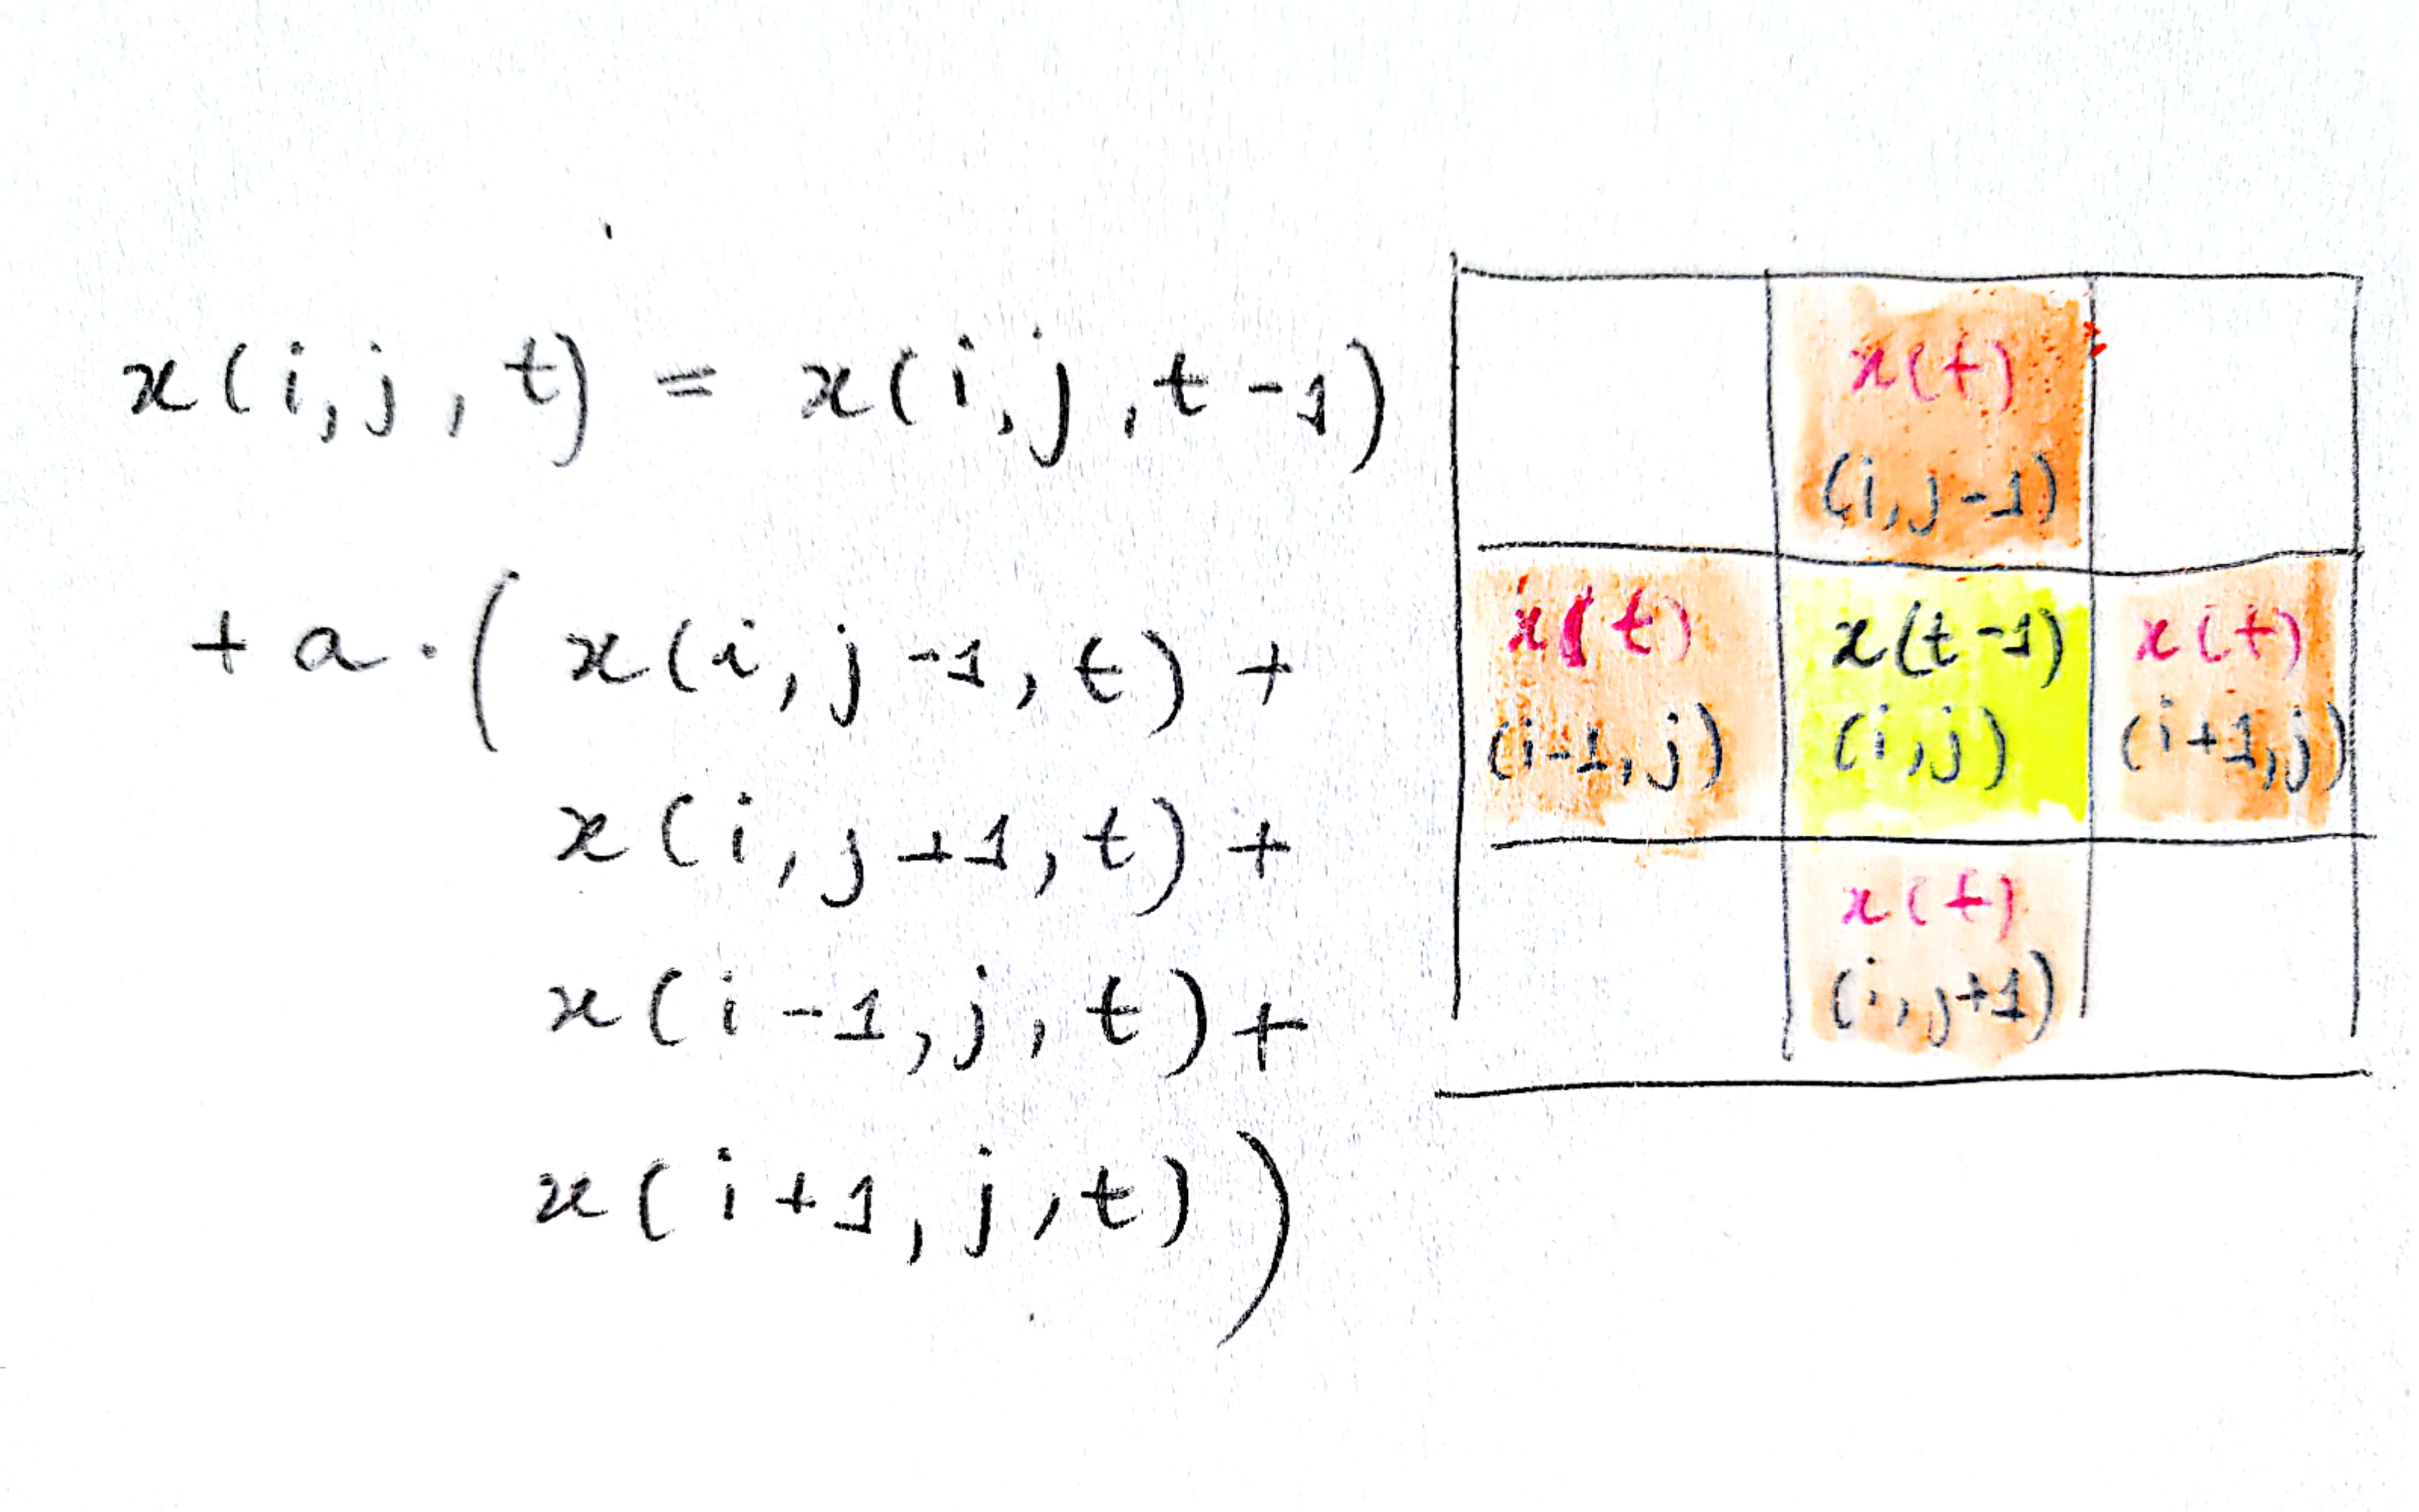 x(i,j,t) = x(i,j,t-1)
+ a.( x(i,j-1,t) +
x(i,j+1,t) +
x(i-1,j,t) +
x(i+1,j,t))
x(t)
(i,j-1)
x(t)
(i-1,j)
x(t-1)
(i,j)
x(t)
(i+1,j)
x(t)
(i,j+1)